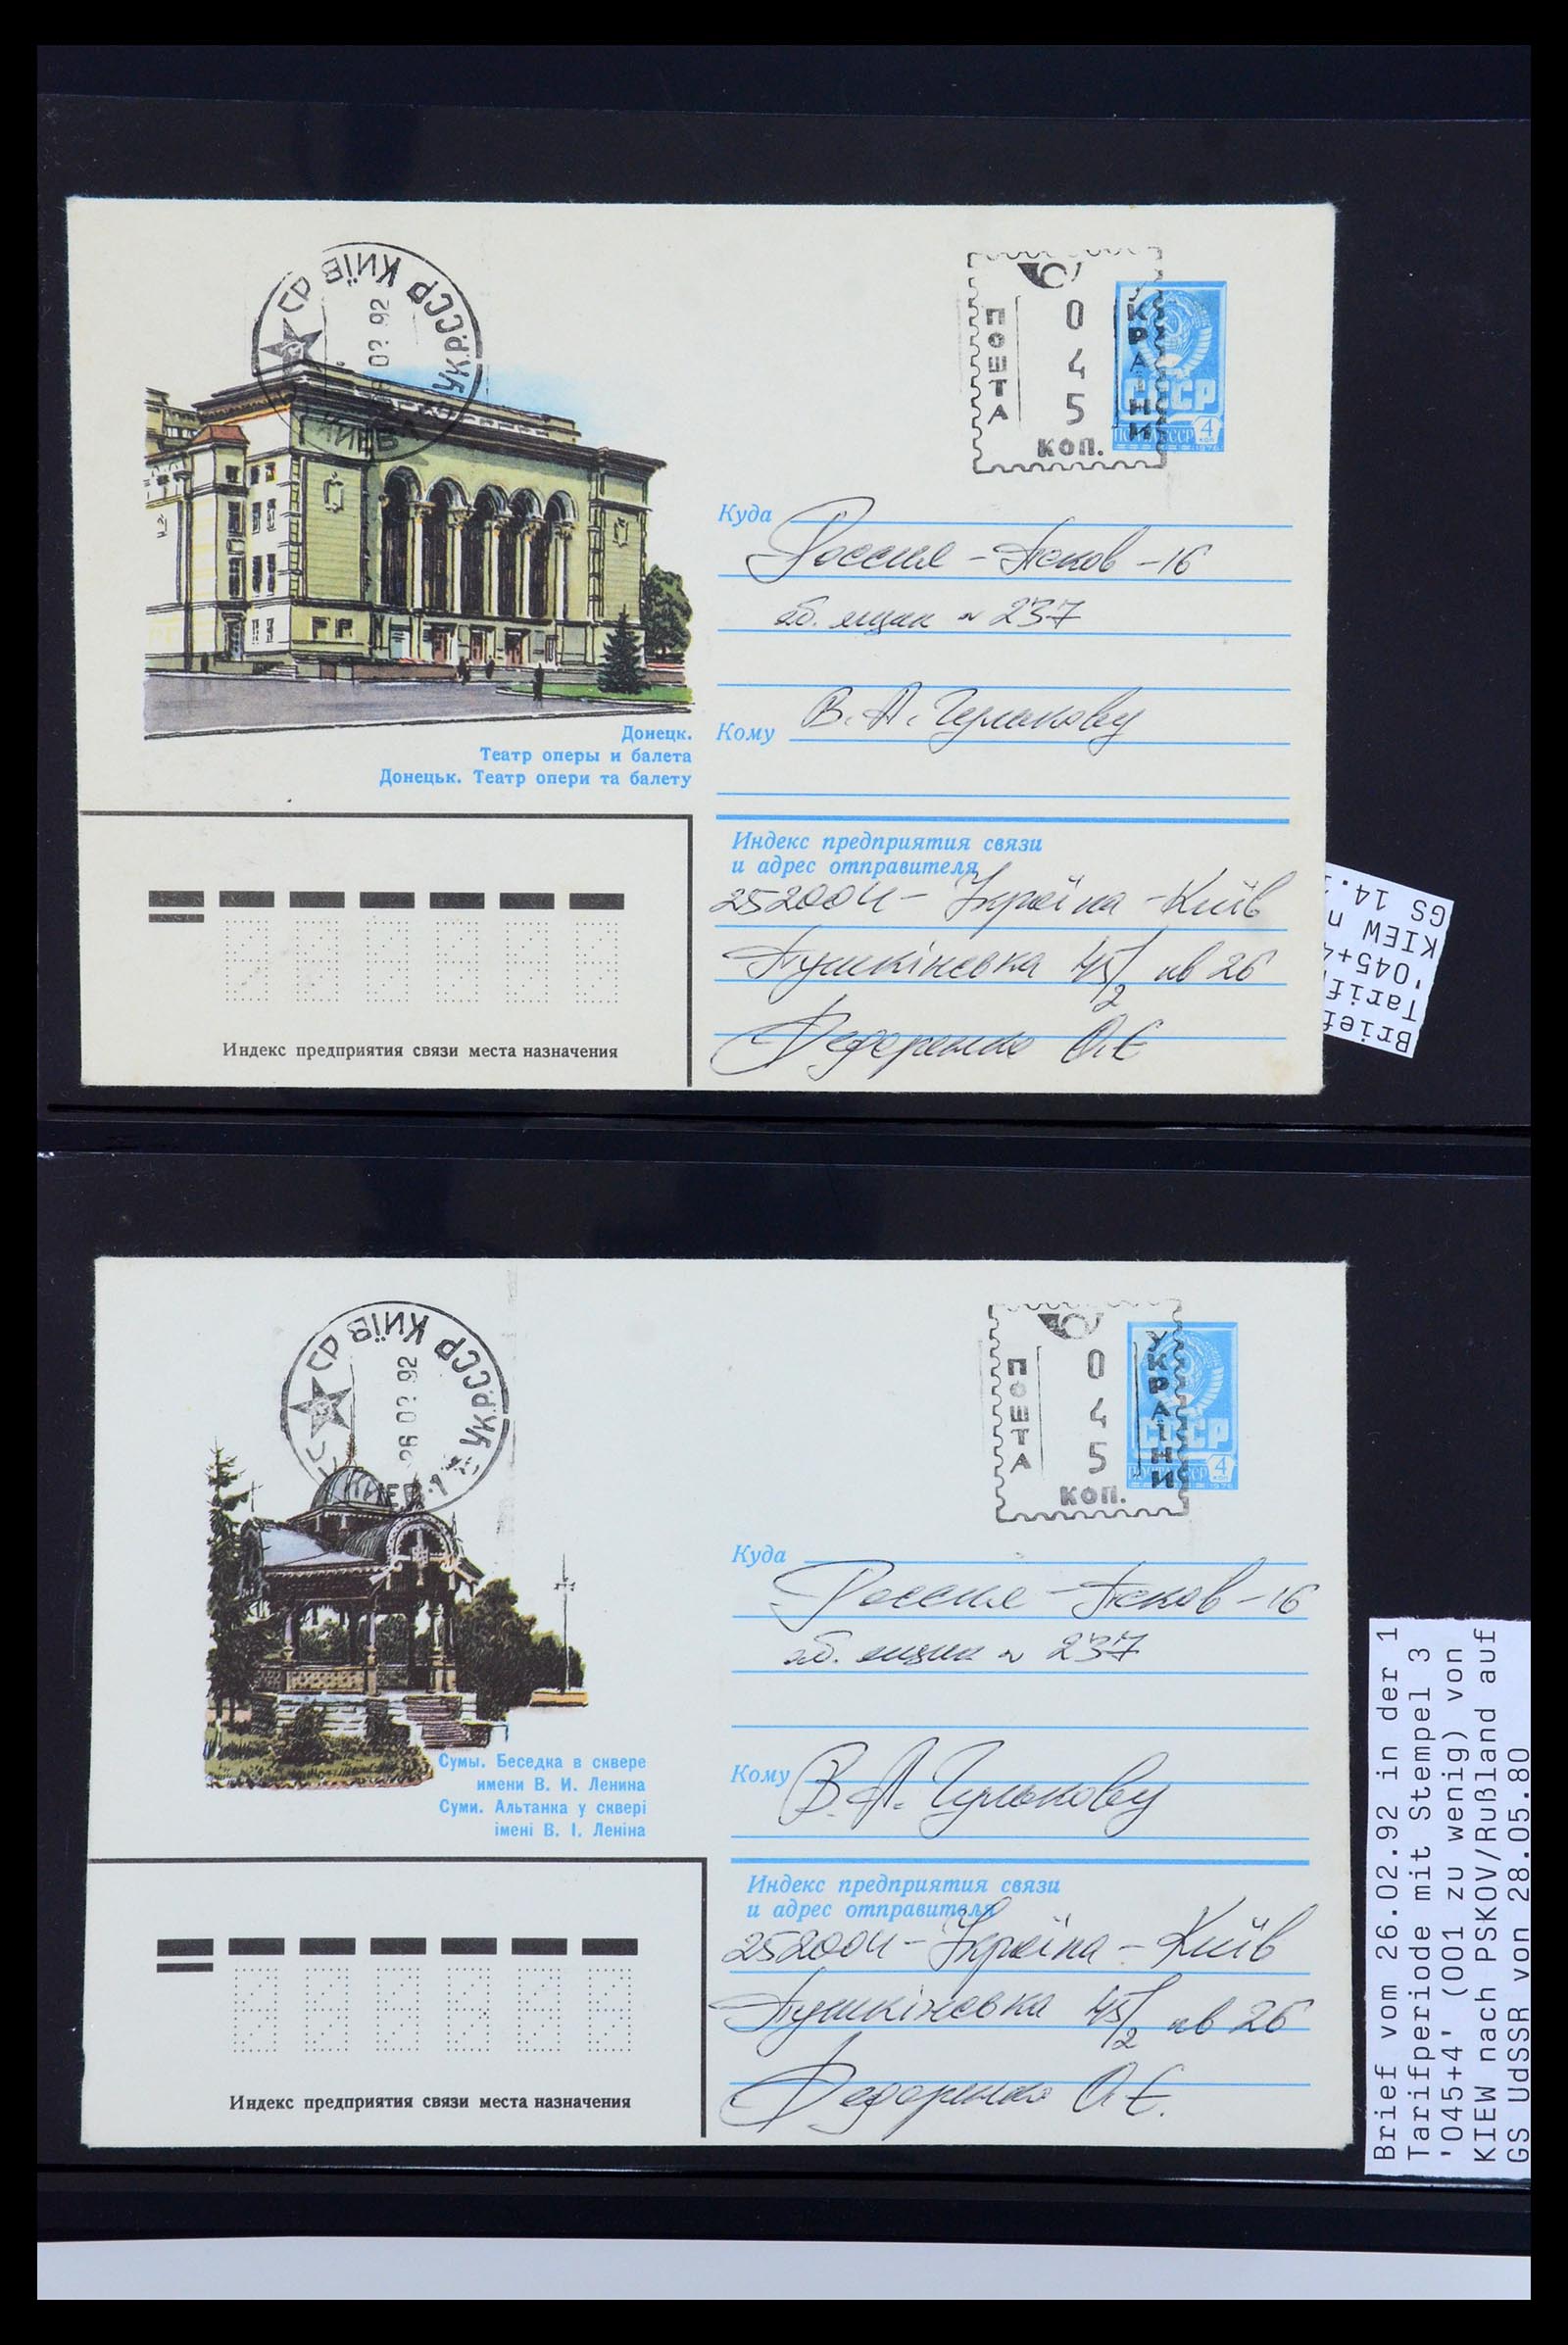 УКР.ССР КИЇВ
02 92
ПОШТА
045
КОП.
УКРАЇНИ
СССР
ПОЧТА СССР 4 КОП
1976
Куда
Россия - Псков - 16
аб. ящик № 237
Кому В. А. Гулькову
Донецк.
Театр оперы и балета
Донецьк. Театр опери та балету
Индекс предприятия связи
и адрес отправителя
252004 - Україна - Київ
Пушкінська 45/2 кв 26
Федоренко О.Є
Индекс предприятия связи места назначения
Brief
Tarif
'045+4
KIEW n
GS 14.
УКР.ССР КИЇВ
26 02 92
ПОШТА
045
КОП.
УКРАЇНИ
СССР
ПОЧТА СССР 4 КОП
1976
Куда
Россия - Псков - 16
аб. ящик № 237
Кому В. А. Гулькову
Сумы. Беседка в сквере
имени В. И. Ленина
Суми. Альтанка у сквері
імені В. І. Леніна
Индекс предприятия связи
и адрес отправителя
252004 - Україна - Київ
Пушкінська 45/2 кв 26
Федоренко О.Є.
Индекс предприятия связи места назначения
Brief vom 26.02.92 in der 1
Tarifperiode mit Stempel 3
'045+4' (001 zu wenig) von
KIEW nach PSKOV/Rußland auf
GS UdSSR von 28.05.80